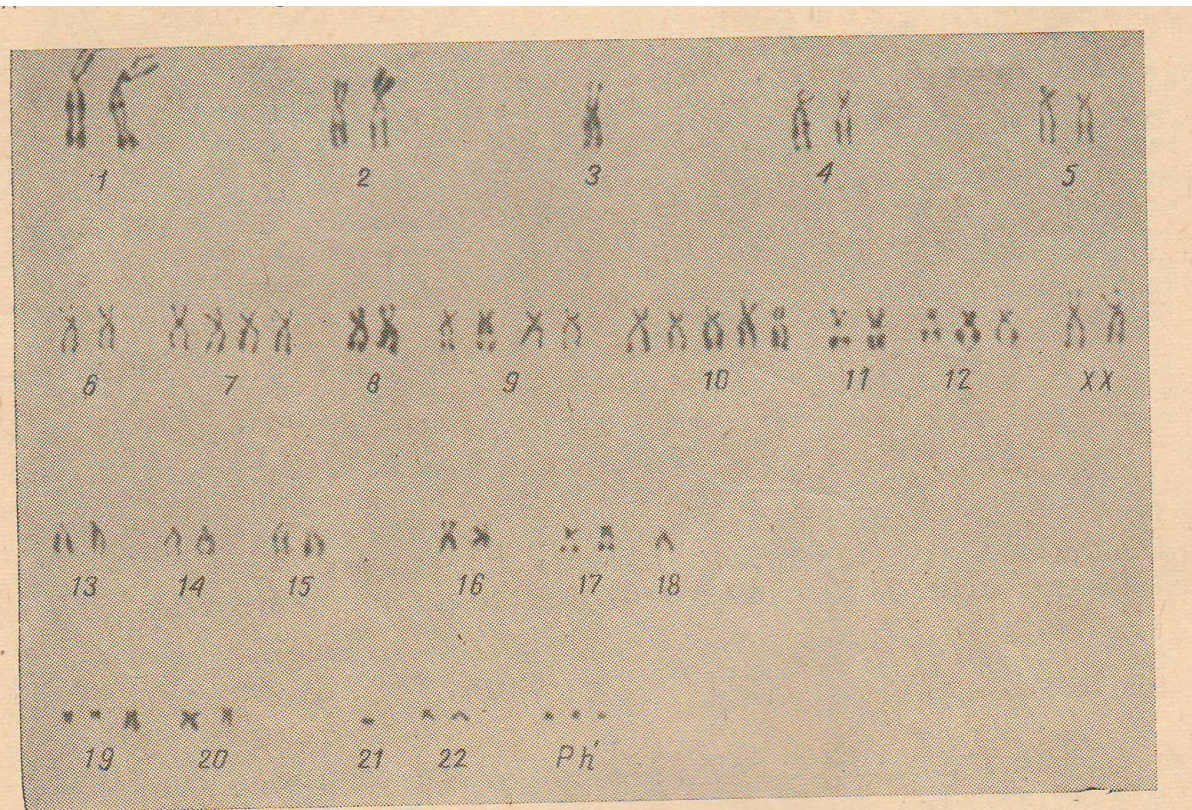 1 2 3 4 5
6 7 8 9 10 11 12 XX
13 14 15 16 17 18
19 20 21 22 Ph'